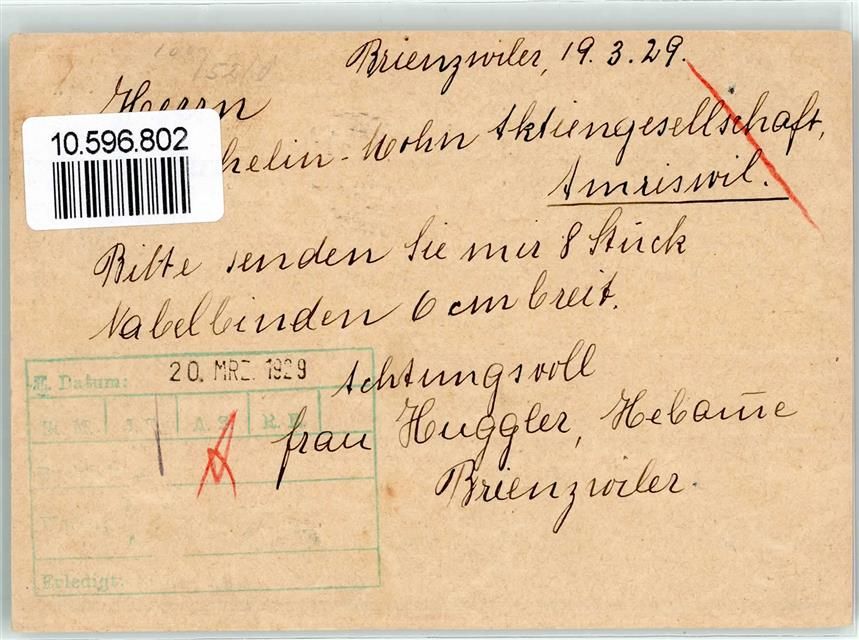 Brienzwiler, 19. 3. 29.
Herrn
10.596.802
helin-Mohn Aktiengesellschaft,
Amriswil.
Bitte senden Sie mir 8 Stück
Nabelbinden 6 cm breit.
20. MRZ. 1929
E. Datum:
Achtungsvoll
A. R. K.
A
frau Huggler, Hebam̅e
Brienzwiler
Erledigt: